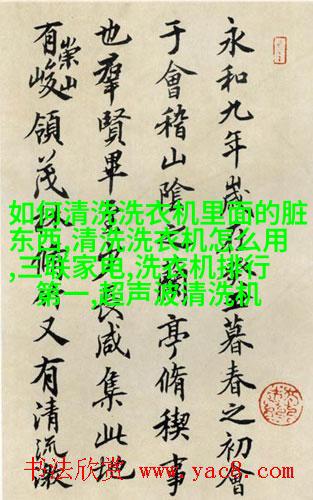 永和九年歲丑暮春之初會
于會稽山陰蘭亭脩稧事
也羣賢畢至少長咸集此地
有崇山峻領茂林脩竹又有清流激
如何清洗洗衣机里面的脏
东西,清洗洗衣机怎么用
,三联家电,洗衣机排行
第一,超声波清洗机
书法欣赏 www.yac8.com